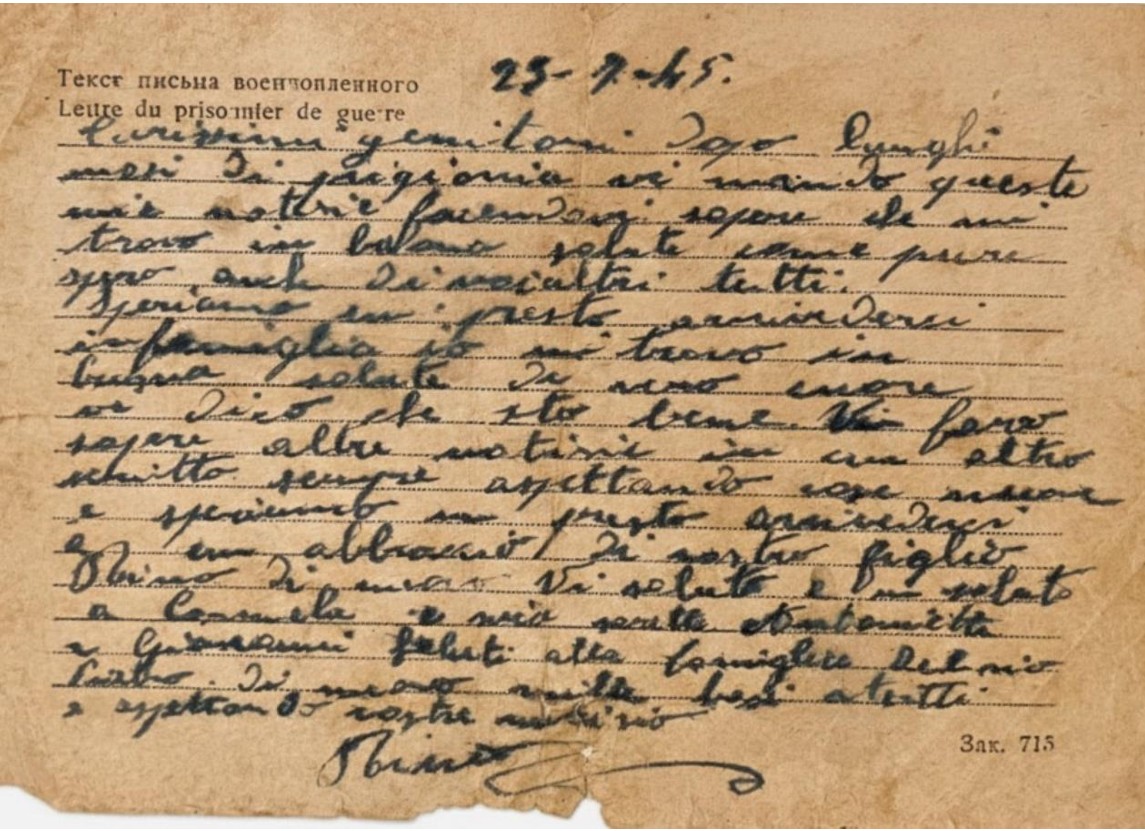 Текст письма военнопленного
Lettre du prisonnier de guerre
23-7-45.
Carissimi genitori dopo lunghi
mesi di prigionia vi mando queste
mie notizie facendovi sapere che mi
trovo in buona salute come pure
spero anche di voialtri tutti.
Speriamo un presto arrivederci
in famiglia io mi trovo in
buona salute di vero cuore
vi dico che sto bene. Vi farò
sapere altre notizie in un altro
scritto sempre aspettando
e speriamo un presto arrivederci
e un abbraccio di vostro figlio
Rino di nuovo Vi saluto e un saluto
a Carmela e mia sorella Antonietta
e Giovanni Saluti alla famiglia
di nuovo mille baci a tutti
e aspettando vostre
Rino
Зак. 715